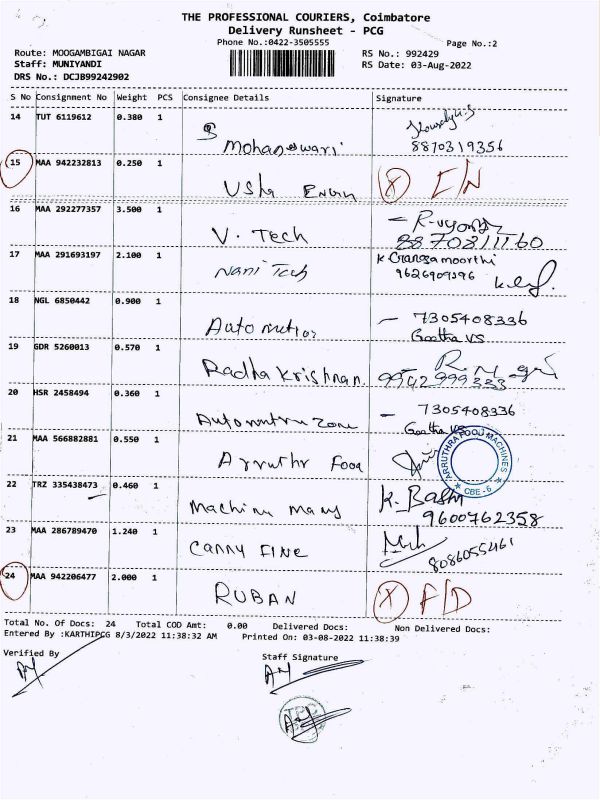 THE PROFESSIONAL COURIERS, Coimbatore
Delivery Runsheet - PCG
Phone No.:0422-3505555
Page No.:2
Route: MOOGAMBIGAI NAGAR
RS No.: 992429
Staff: MUNIYANDI
RS Date: 03-Aug-2022
DRS No.: DCJB99242902
S No Consignment No Weight PCS Consignee Details Signature
14 TUT 6119612 0.380 1
S Mohaneswari 8870319356
15 MAA 942232813 0.250 1
Usha Engin X I/N
16 MAA 292277357 3.500 1
V. Tech 8870811160
17 MAA 291693197 2.100 1 K Crangamoorthi
Nani Tech 9626909596
18 NGL 6850442 0.900 1
Automation - 7305408336
Geetha VS
19 GDR 5260013 0.570 1
Radha Krishnan 9942 999333
20 HSR 2458494 0.360 1
Automation Zone - 7305408336
Geetha VS
21 MAA 566882881 0.550 1
Arruthr Food
ARRUTHRA FOOD MACHINES
CBE - 6
22 TRZ 335438473 0.460 1
Machine Many K. Bashi
9600762358
23 MAA 286789470 1.240 1
Canny Fine 8086055461
24 MAA 942206477 2.000 1
RUBAN X F/D
Total No. Of Docs: 24 Total COD Amt: 0.00 Delivered Docs: Non Delivered Docs:
Entered By :KARTHIPCG 8/3/2022 11:38:32 AM Printed On: 03-08-2022 11:38:39
Verified By
Staff Signature
TPC